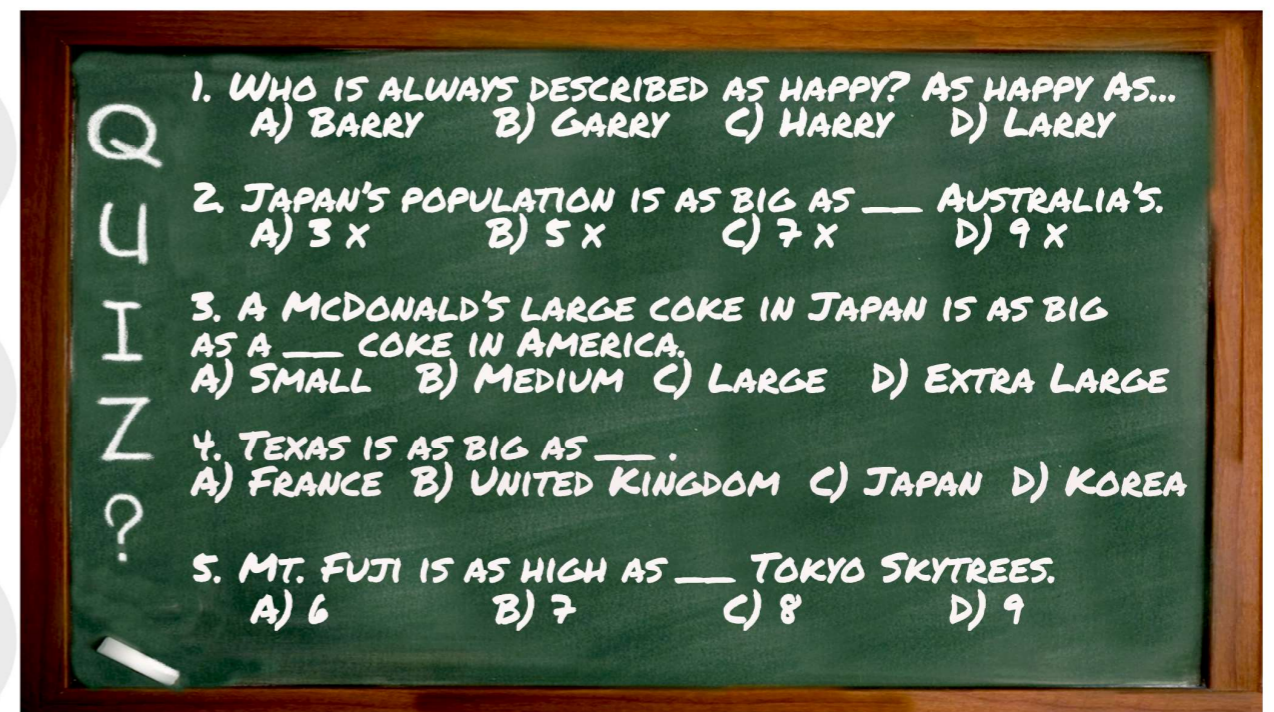 QUIZ?
1. WHO IS ALWAYS DESCRIBED AS HAPPY? AS HAPPY AS...
A) BARRY B) GARRY C) HARRY D) LARRY
2. JAPAN'S POPULATION IS AS BIG AS ___ AUSTRALIA'S.
A) 3 X B) 5 X C) 7 X D) 9 X
3. A MCDONALD'S LARGE COKE IN JAPAN IS AS BIG
AS A ___ COKE IN AMERICA.
A) SMALL B) MEDIUM C) LARGE D) EXTRA LARGE
4. TEXAS IS AS BIG AS ___ .
A) FRANCE B) UNITED KINGDOM C) JAPAN D) KOREA
5. MT. FUJI IS AS HIGH AS ___ TOKYO SKYTREES.
A) 6 B) 7 C) 8 D) 9